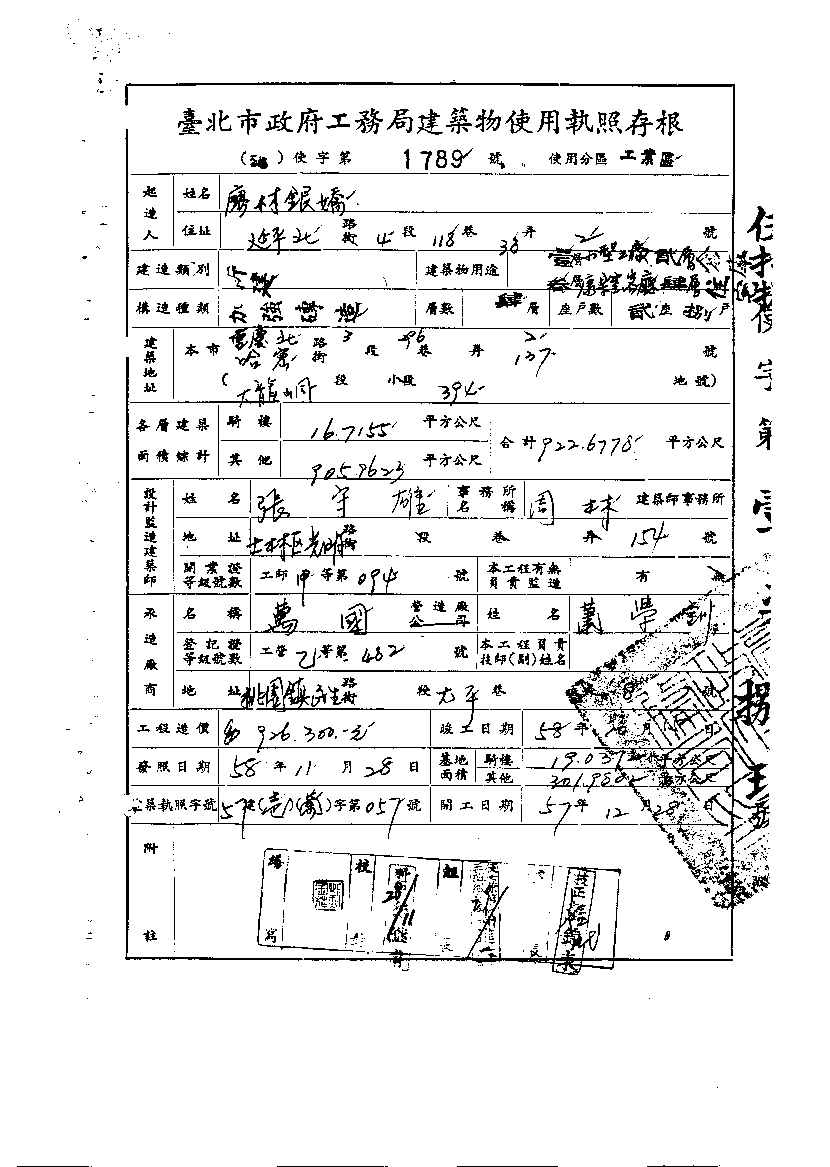 臺北市政府工務局建築物使用執照存根
( ) 使字第 1789 號 使用分區 工業區
起造人 姓名 廖林銀嬌
住址 延平北 路街 4 段 118 巷 38 弄 2 號
建造類別 建築物用途 壹層小型工廠貳層
構造種類 加強磚造 層數 肆 層 座戶數 貳 座 捌 戶
建築地址 本市 重慶北 哈密 路街 3 段 296 巷 弄 2 137 號
( 大龍峒 段 小段 394 地號)
各層建築面積綜計 騎樓 16.7155 平方公尺 合計 922.6778 平方公尺
其他 905.9623 平方公尺
設計監造建築師 姓名 張宇雄 事務所名稱 周林 建築師事務所
地址 士林區光明 路街 段 巷 弄 154 號
開業證等級號數 工師 甲 等第 094 號 本工程有無負責監造 有 無
承造廠商 名稱 萬國 營造廠公司 姓名 葉學釗
登記證等級號數 工營 乙 等第 482 號 本工程負責技師(副)姓名
地址 桃園鎮民生 路街 段 太平 巷 8 號
工程造價 926.300.元 竣工日期 58 年 月 日
發照日期 58 年 11 月 28 日 基地面積 騎樓 19.03 平方公尺
其他 301.980 平方公尺
建築執照字號 57 建(壹)( )字第 057 號 開工日期 57 年 12 月 28 日
附註